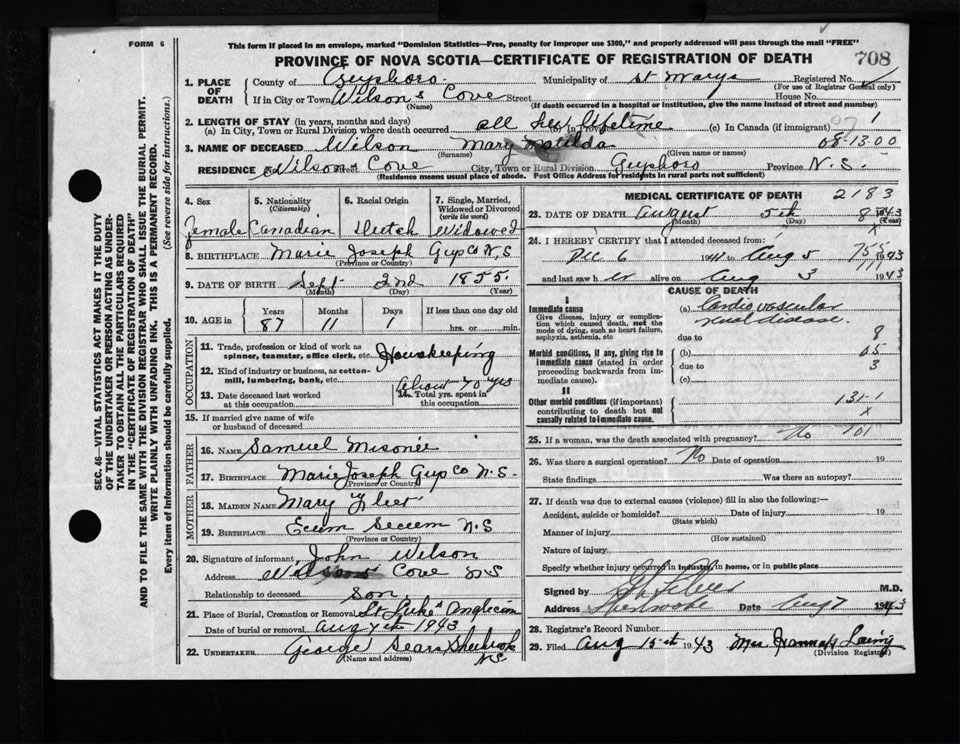 FORM 6
This form if placed in an envelope, marked "Dominion Statistics—Free, penalty for improper use $300," and properly addressed will pass through the mail "FREE"
PROVINCE OF NOVA SCOTIA—CERTIFICATE OF REGISTRATION OF DEATH
708
SEC. 46—VITAL STATISTICS ACT MAKES IT THE DUTY
OF THE UNDERTAKER OR PERSON ACTING AS UNDER-
TAKER TO OBTAIN ALL THE PARTICULARS REQUIRED
IN THE "CERTIFICATE OF REGISTRATION OF DEATH"
AND TO FILE THE SAME WITH THE DIVISION REGISTRAR WHO SHALL ISSUE THE BURIAL PERMIT.
WRITE PLAINLY WITH UNFADING INK. THIS IS A PERMANENT RECORD.
Every item of Information should be carefully supplied. (See reverse side for instructions.)
1. PLACE OF DEATH
County of Guysboro. Municipality of St Marys Registered No.
(For use of Registrar General only)
If in City or Town Wilson's Cove Street House No.
(Name) (If death occurred in a hospital or institution, give the name instead of street and number)
2. LENGTH OF STAY (in years, months and days)
(a) In City, Town or Rural Division where death occurred all her lifetime (b) In Province (c) In Canada (if immigrant) 1
3. NAME OF DECEASED Wilson Mary Matilda 08-13.00
(Surname) (Given name or names)
RESIDENCE Wilson's Cove City, Town or Rural Division Guysboro Province N.S.
(Residence means usual place of abode. Post Office Address for residents in rural parts not sufficient)
4. Sex
female
5. Nationality
(Citizenship)
Canadian
6. Racial Origin
Dutch
7. Single, Married,
Widowed or Divorced
(write the word)
Widowed
8. BIRTHPLACE Marie Joseph Guy Co N.S
(Province or Country)
9. DATE OF BIRTH Sept 2nd 1855.
(Month) (Day) (Year)
10. AGE in
Years Months Days If less than one day old
87 11 1 hrs. or min.
OCCUPATION
11. Trade, profession or kind of work as
spinner, teamster, office clerk, etc. Housekeeping
12. Kind of industry or business, as cotton-
mill, lumbering, bank, etc.
13. Date deceased last worked
at this occupation
14. Total yrs. spent in
this occupation About 70 yrs
15. If married give name of wife
or husband of deceased
FATHER
16. NAME Samuel Misoner
17. BIRTHPLACE Marie Joseph Guy Co N.S.
(Province or Country)
MOTHER
18. MAIDEN NAME Mary
19. BIRTHPLACE Ecum Secum N.S
(Province or Country)
20. Signature of informant John Wilson
Address Wilsons Cove NS
Relationship to deceased Son
21. Place of Burial, Cremation or Removal St Luke's Anglican
Date of burial or removal Aug 7th 1943
22. UNDERTAKER George Sears Sherbrooke
(Name and address) N.S
MEDICAL CERTIFICATE OF DEATH 2183
23. DATE OF DEATH August 5th 1943
(Month) (Day) (Year)
24. I HEREBY CERTIFY that I attended deceased from:
Dec 6 1941 to Aug 5 1943
and last saw her alive on Aug 3 1943
CAUSE OF DEATH
I
Immediate cause
Give disease, injury or complica-
tion which caused death, not the
mode of dying, such as heart failure,
asphyxia, asthenia, etc
(a) Cardio vascular
renal disease.
due to 8
Morbid conditions, if any, giving rise to
immediate cause (stated in order
proceeding backwards from im-
mediate cause).
(b) 05
due to 3
(c)
II
Other morbid conditions (if important)
contributing to death but not
causally related to immediate cause.
131-1
x
25. If a woman, was the death associated with pregnancy? No 101
26. Was there a surgical operation? No Date of operation 19
State findings Was there an autopsy?
27. If death was due to external causes (violence) fill in also the following:—
Accident, suicide or homicide? Date of injury 19
(State which)
Manner of injury
(How sustained)
Nature of injury
Specify whether injury occurred in Industry, in home, or in public place
Signed by M.D.
Address Sherbrooke Date Aug 7 1943
28. Registrar's Record Number
29. Filed Aug 15th 1943 Mrs Hannah Laing
(Division Registrar)